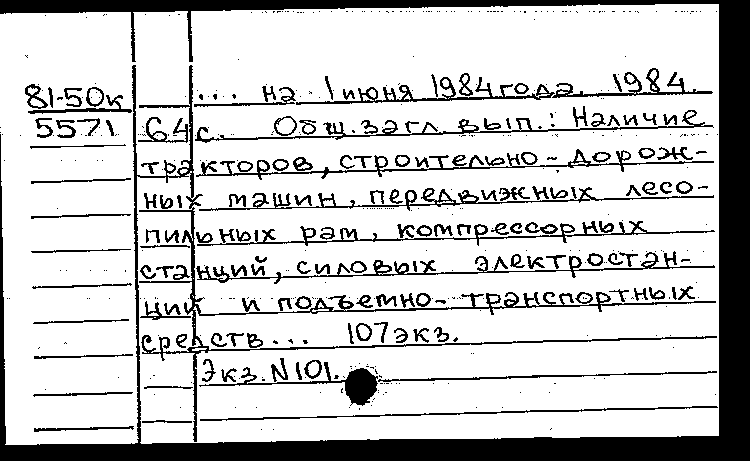 81-50к
5571
... на 1 июня 1984 года. 1984.
64 с. Общ. загл. вып.: Наличие
тракторов, строительно-дорож-
ных машин, передвижных лесо-
пильных рам, компрессорных
станций, силовых электростан-
ций и подъемно-транспортных
средств... 107 экз.
Экз. N 101.